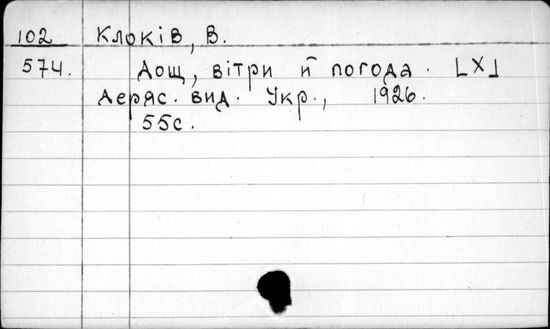 102 Клоків, В.
574. Дощ, вітри й погода. [X]
Держ. вид. Укр., 1926.
55с.